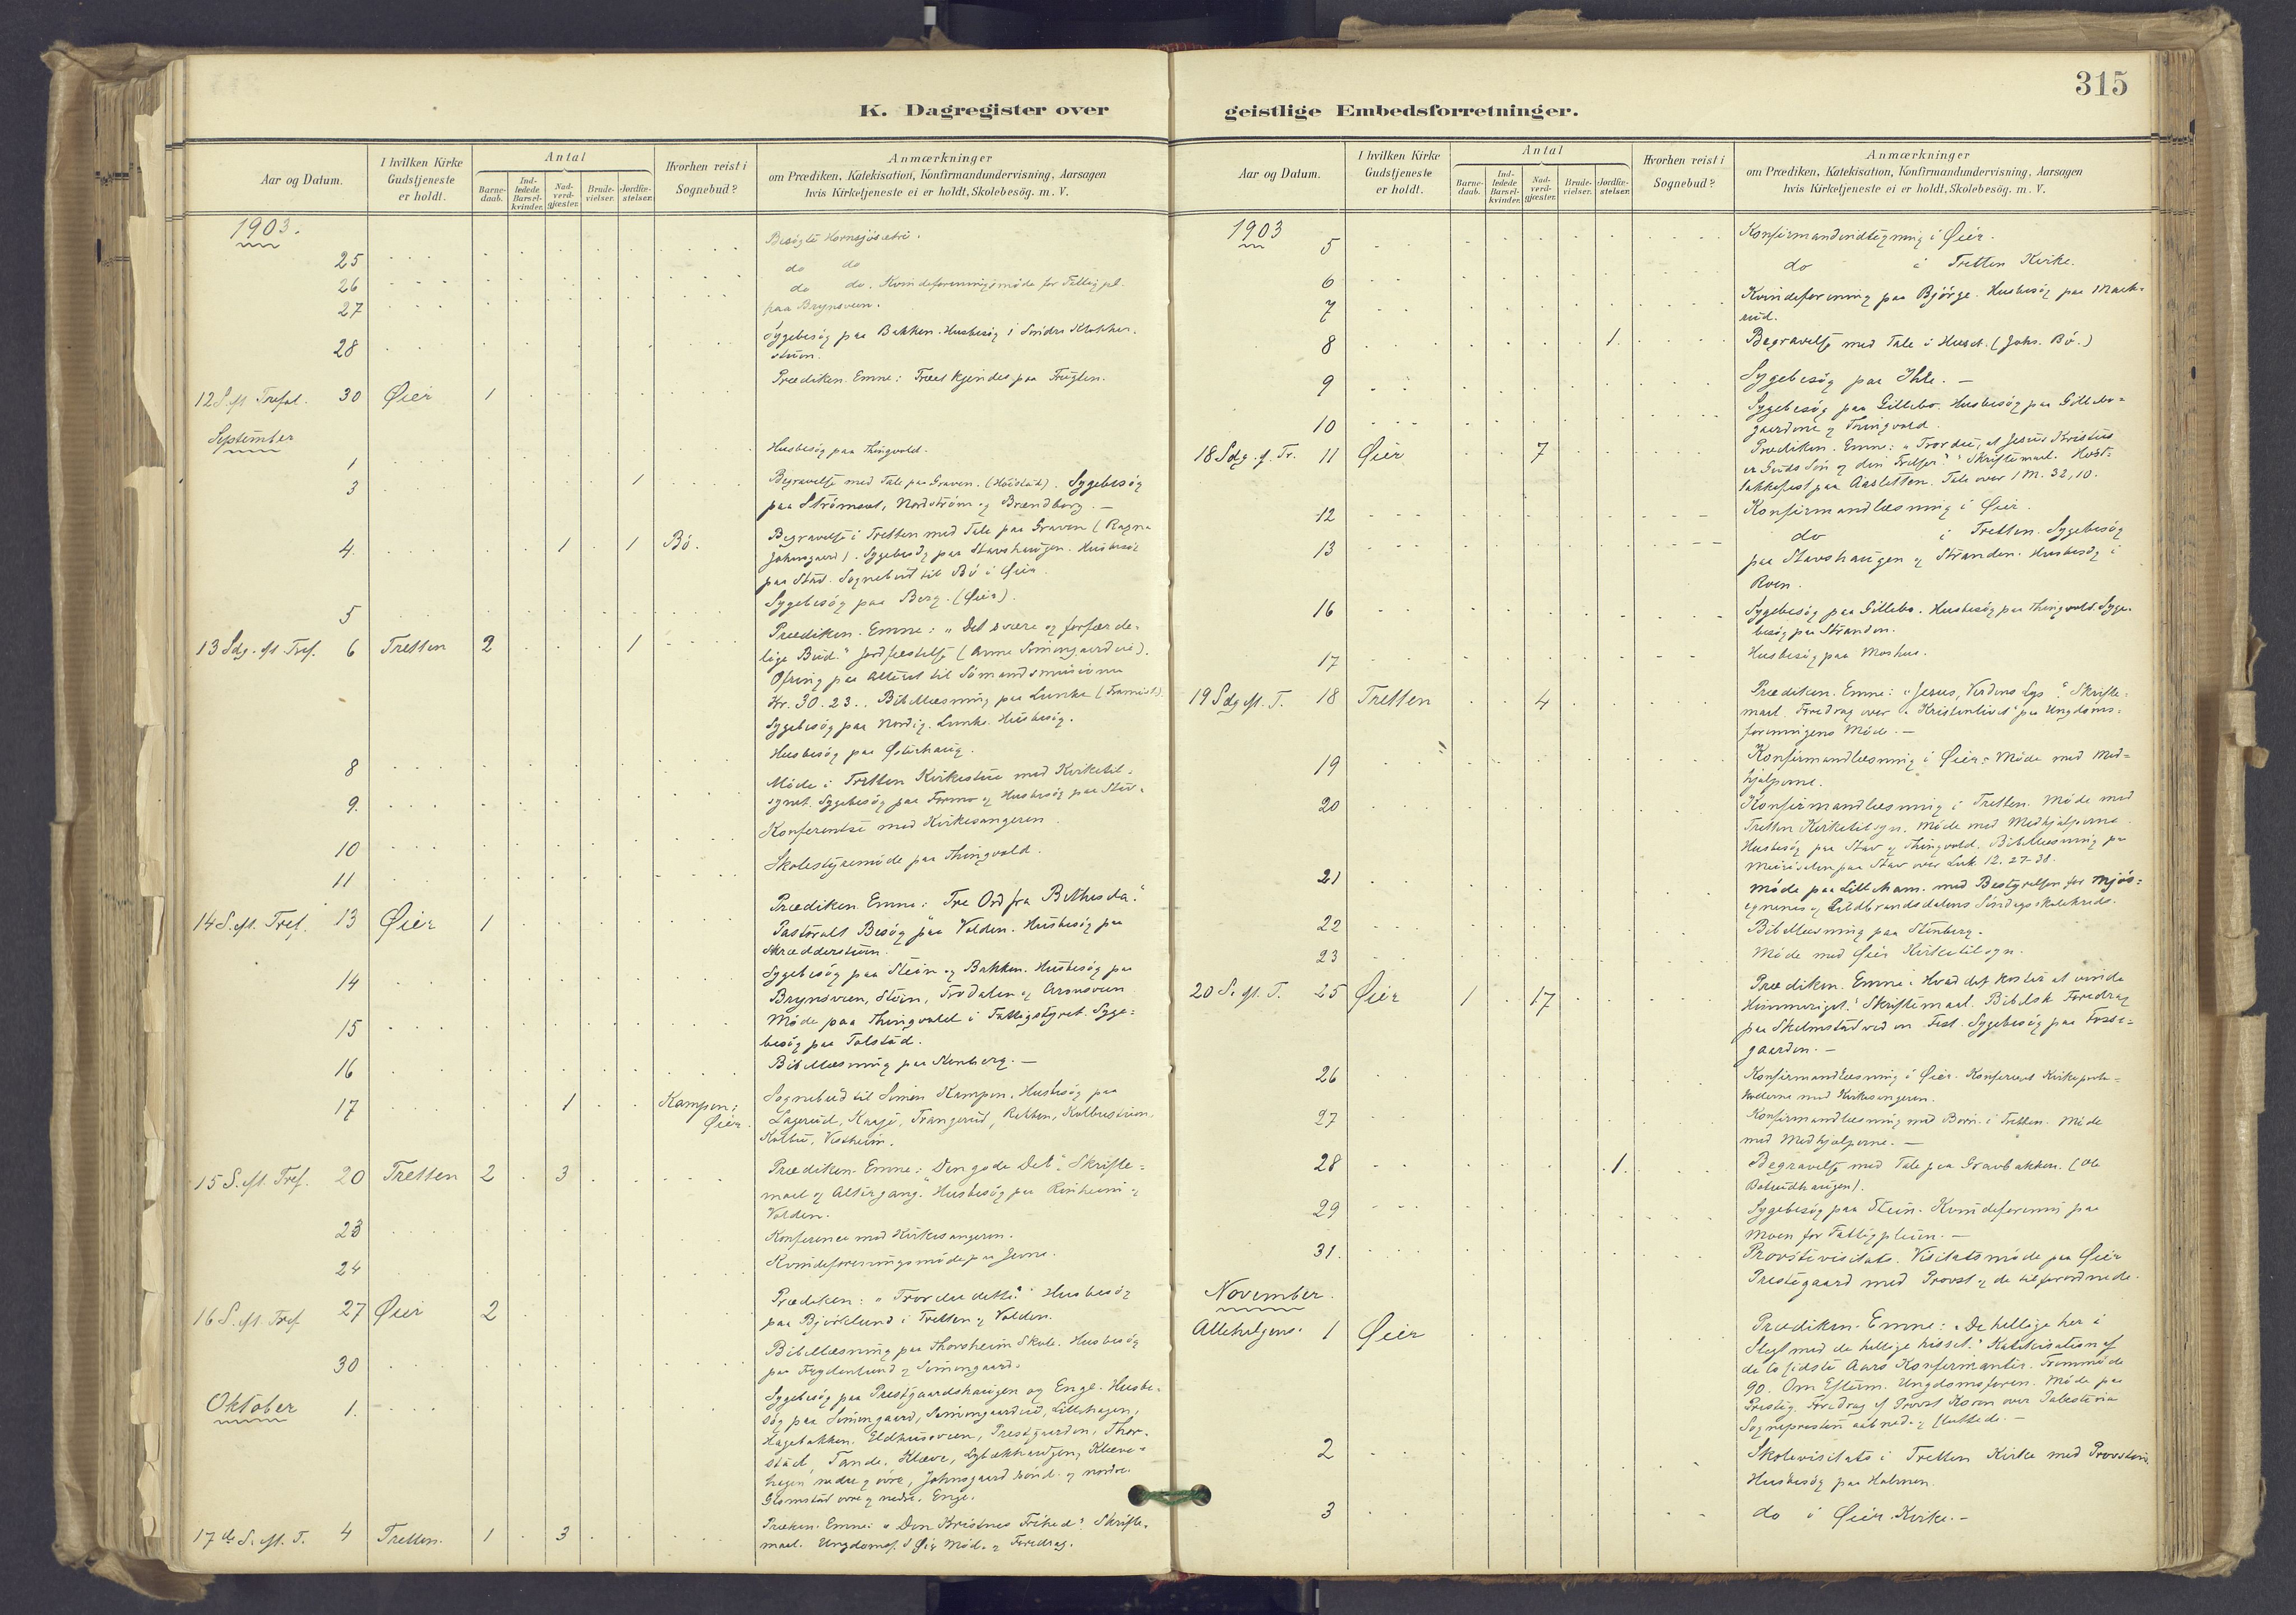 315
K. Dagregister over geistlige Embedsforretninger.
Aar og Datum. I hvilken Kirke Gudstjeneste er holdt. Antal Barnedaab. Indledede Barselkvinder. Nadverdgjæster. Brudevielser. Jordfæstelser. Hvorhen reist i Sognebud? Anmærkninger om Prædiken, Katekisation, Konfirmandundervisning, Aarsagen hvis Kirketjeneste ei er holdt, Skolebesög. m. V.
1903.
Besøgte Hornsjøsætri.
25 do do
26 do do. Kvindeforeningsmøde for
27 paa Brynsveen.
28 Sygebesøg paa Bakken. Husbesøg i Søndre
12 S. ft. Trefol. 30 Øier 1 Prædiken. Emne: Træet kjendes paa Frugten.
September
1 Husbesøg paa Thingvold.
3 1 Begravelse med Tale paa Graven. Sygebesøg
paa Nordstrøm og Brendborg. —
4. 1 1 Bø. Begravelse i Tretten med Tale paa Graven (Ragna
Johnsgaard). Sygebesøg paa Stavshaugen. Husbesøg
paa Stav. Sognebud til Bø i Øier.
5 Sygebesøg paa Berg. (Øier).
13 Sdg. ft. Tref. 6 Tretten 2 1 Prædiken. Emne: "Det svære og forfærde-
lige Bud." Jordfæstelse (Anne
Ofring paa Alteret til Sømandsmissionen
Kr. 30.23. Bibellæsning paa Lunke
Sygebesøg paa Husbesøg.
8 Husbesøg paa Østerhaug.
9. Møde i Tretten Kirkestue med Kirketil-
synet. Sygebesøg paa Formo og Husbesøg paa Stav.
10 Konferentse med Kirkesangeren.
11 Skolestyremøde paa Thingvold.
14 S. ft. Tref. 13 Øier 1 Prædiken. Emne: Tre Ord fra Bethesda."
Pastoralt Besøg paa Volden. Husbesøg paa
Skrædderstuen.
14 Sygebesøg paa Stein og Bakken. Husbesøg paa
Brynsveen,
15 Møde paa Thingvold i Fattigstyret. Syge-
besøg paa Tolstad.
16 Bibellæsning paa Stenberg. —
17 1 Kampen i Øier. Sognebud til Simen Kampen. Husbesøg paa
Lagerud,
15 S. ft. Tref. 20 Tretten 2 3 Prædiken. Emne: Den gode Del". Skrifte-
maal og Altergang. Husbesøg paa Rinheim og
Volden.
23 Konference med Kirkesangeren.
24 Kvindeforeningsmøde paa Jevne.
16 S. ft. Tref 27 Øier 2 Prædiken: "Tror du dette?" Husbesøg
paa Bjørklund i Tretten og Volden.
30 Bibellæsning paa Thorsheim Skole. Husbesøg
paa Frydenlund og Simengaard.
Oktober 1. Sygebesøg paa Prestgaardshaugen og Enge. Husbe-
søg paa Simengaard, Simengaardeie, Lillehagen,
Hagebakken, Eldhusveen, Prestgaarden, Thor-
stad, Tande, Kleve,
hagen nedre og øvre, Johnsgaard sønd. og nordre.
Glomstad øvre og nedre. Enge.
17de S. ft. T. 4 Tretten. 1 3 Emne: "Den Kristnes Frihed". Skrifte-
maal. Ungdomsf. i Øier Møde og Foredrag.
Aar og Datum. I hvilken Kirke Gudstjeneste er holdt. Antal Barnedaab. Indledede Barselkvinder. Nadverdgjæster. Brudevielser. Jordfæstelser. Hvorhen reist i Sognebud? Anmærkninger om Prædiken, Katekisation, Konfirmandundervisning, Aarsagen hvis Kirketjeneste ei er holdt, Skolebesög. m. V.
1903
5 Konfirmandindtegning i Øier.
6 do i Tretten Kirke.
7 Kvindeforening paa Bjørge. Husbesøg paa
rud.
8 1. Begravelse med Tale i Huset. (Johs. Bø.)
9 Sygebesøg paa Ihle. —
10 Sygebesøg paa Gillebo. Husbesøg paa Gillebo-
gaardene og Thingvold.
18 Sdg. f. Tr. 11 Øier 7 Prædiken. Emne: "Tror du, at Jesus Kristus
er Guds Søn og din Frelser?" Skriftemaal. Høst-
takkefest paa Aasletten. Tale over 1 M. 32,10.
12 Konfirmandlæsning i Øier.
13 do i Tretten. Sygebesøg
paa Stavshaugen og Stranden. Husbesøg i
Roen.
16 Sygebesøg paa Gillebo. Husbesøg paa Thingvold. Syge-
besøg paa Stranden.
17 Husbesøg paa Moshus.
19 Sdg ft. T. 18 Tretten 4 Prædiken. Emne: "Jesus, Verdens Lys". Skrifte-
maal. Foredrag over "Kristenlivet" paa Ungdoms-
foreningens Møde. —
19 Konfirmandlæsning i Øier. Møde med Med-
hjælperne.
20 Konfirmandlæsning i Tretten. Møde med
Tretten Kirketilsyn. Møde med Medhjælperne.
Husbesøg paa Stav og Thingvold. Bibellæsning paa
Meierisalen paa Stav over Luk. 12, 27-38.
21 Møde paa Lilleham. med Bestyrelsen for Mjøs-
egnenes og Gudbrandsdalens Søndagsskolekreds.
22 Bibellæsning paa Stenberg.
23 Møde med Øier Kirketilsyn.
20 S. ft. T. 25 Øier 1 17 Prædiken. Emne: Hvad det koster at vinde
Himmeriget." Skriftemaal. Bibelsk Foredrag
paa Skelmstad ved en Fest. Sygebesøg paa Fosse-
gaarden. —
26 Konfirmandlæsning i Øier. Konfereret Kirkeproto-
kollerne med Kirkesangeren.
27 Konfirmandlæsning med Børn i Tretten. Møde
med Medhjælperne. —
28 1. Begravelse med Tale paa Gravbakken. (Ole
29 Sygebesøg paa Stein. Kvindeforening paa
Moen for Fattigpleien. —
31. Provstivisitats. Visitatsmøde paa Øier
Prestegaard med Provst og de tilforordnede.
November.
Allehelgens. 1 Øier Prædiken. Emne: "De hellige her i
Slegt med de hellige hisset." Katekisation af
de to sidste Aars Konfirmanter. Fremmøde
90. Om Efterm. Ungdomsforen. Møde paa
Prestg. Foredrag af Provst Koren over Palestina
Sognepresten aabnede og sluttede. —
2 Skolevisitats i Tretten Kirke med Provsten.
Husbesøg paa Holmen.
3 do i Øier Kirke. —